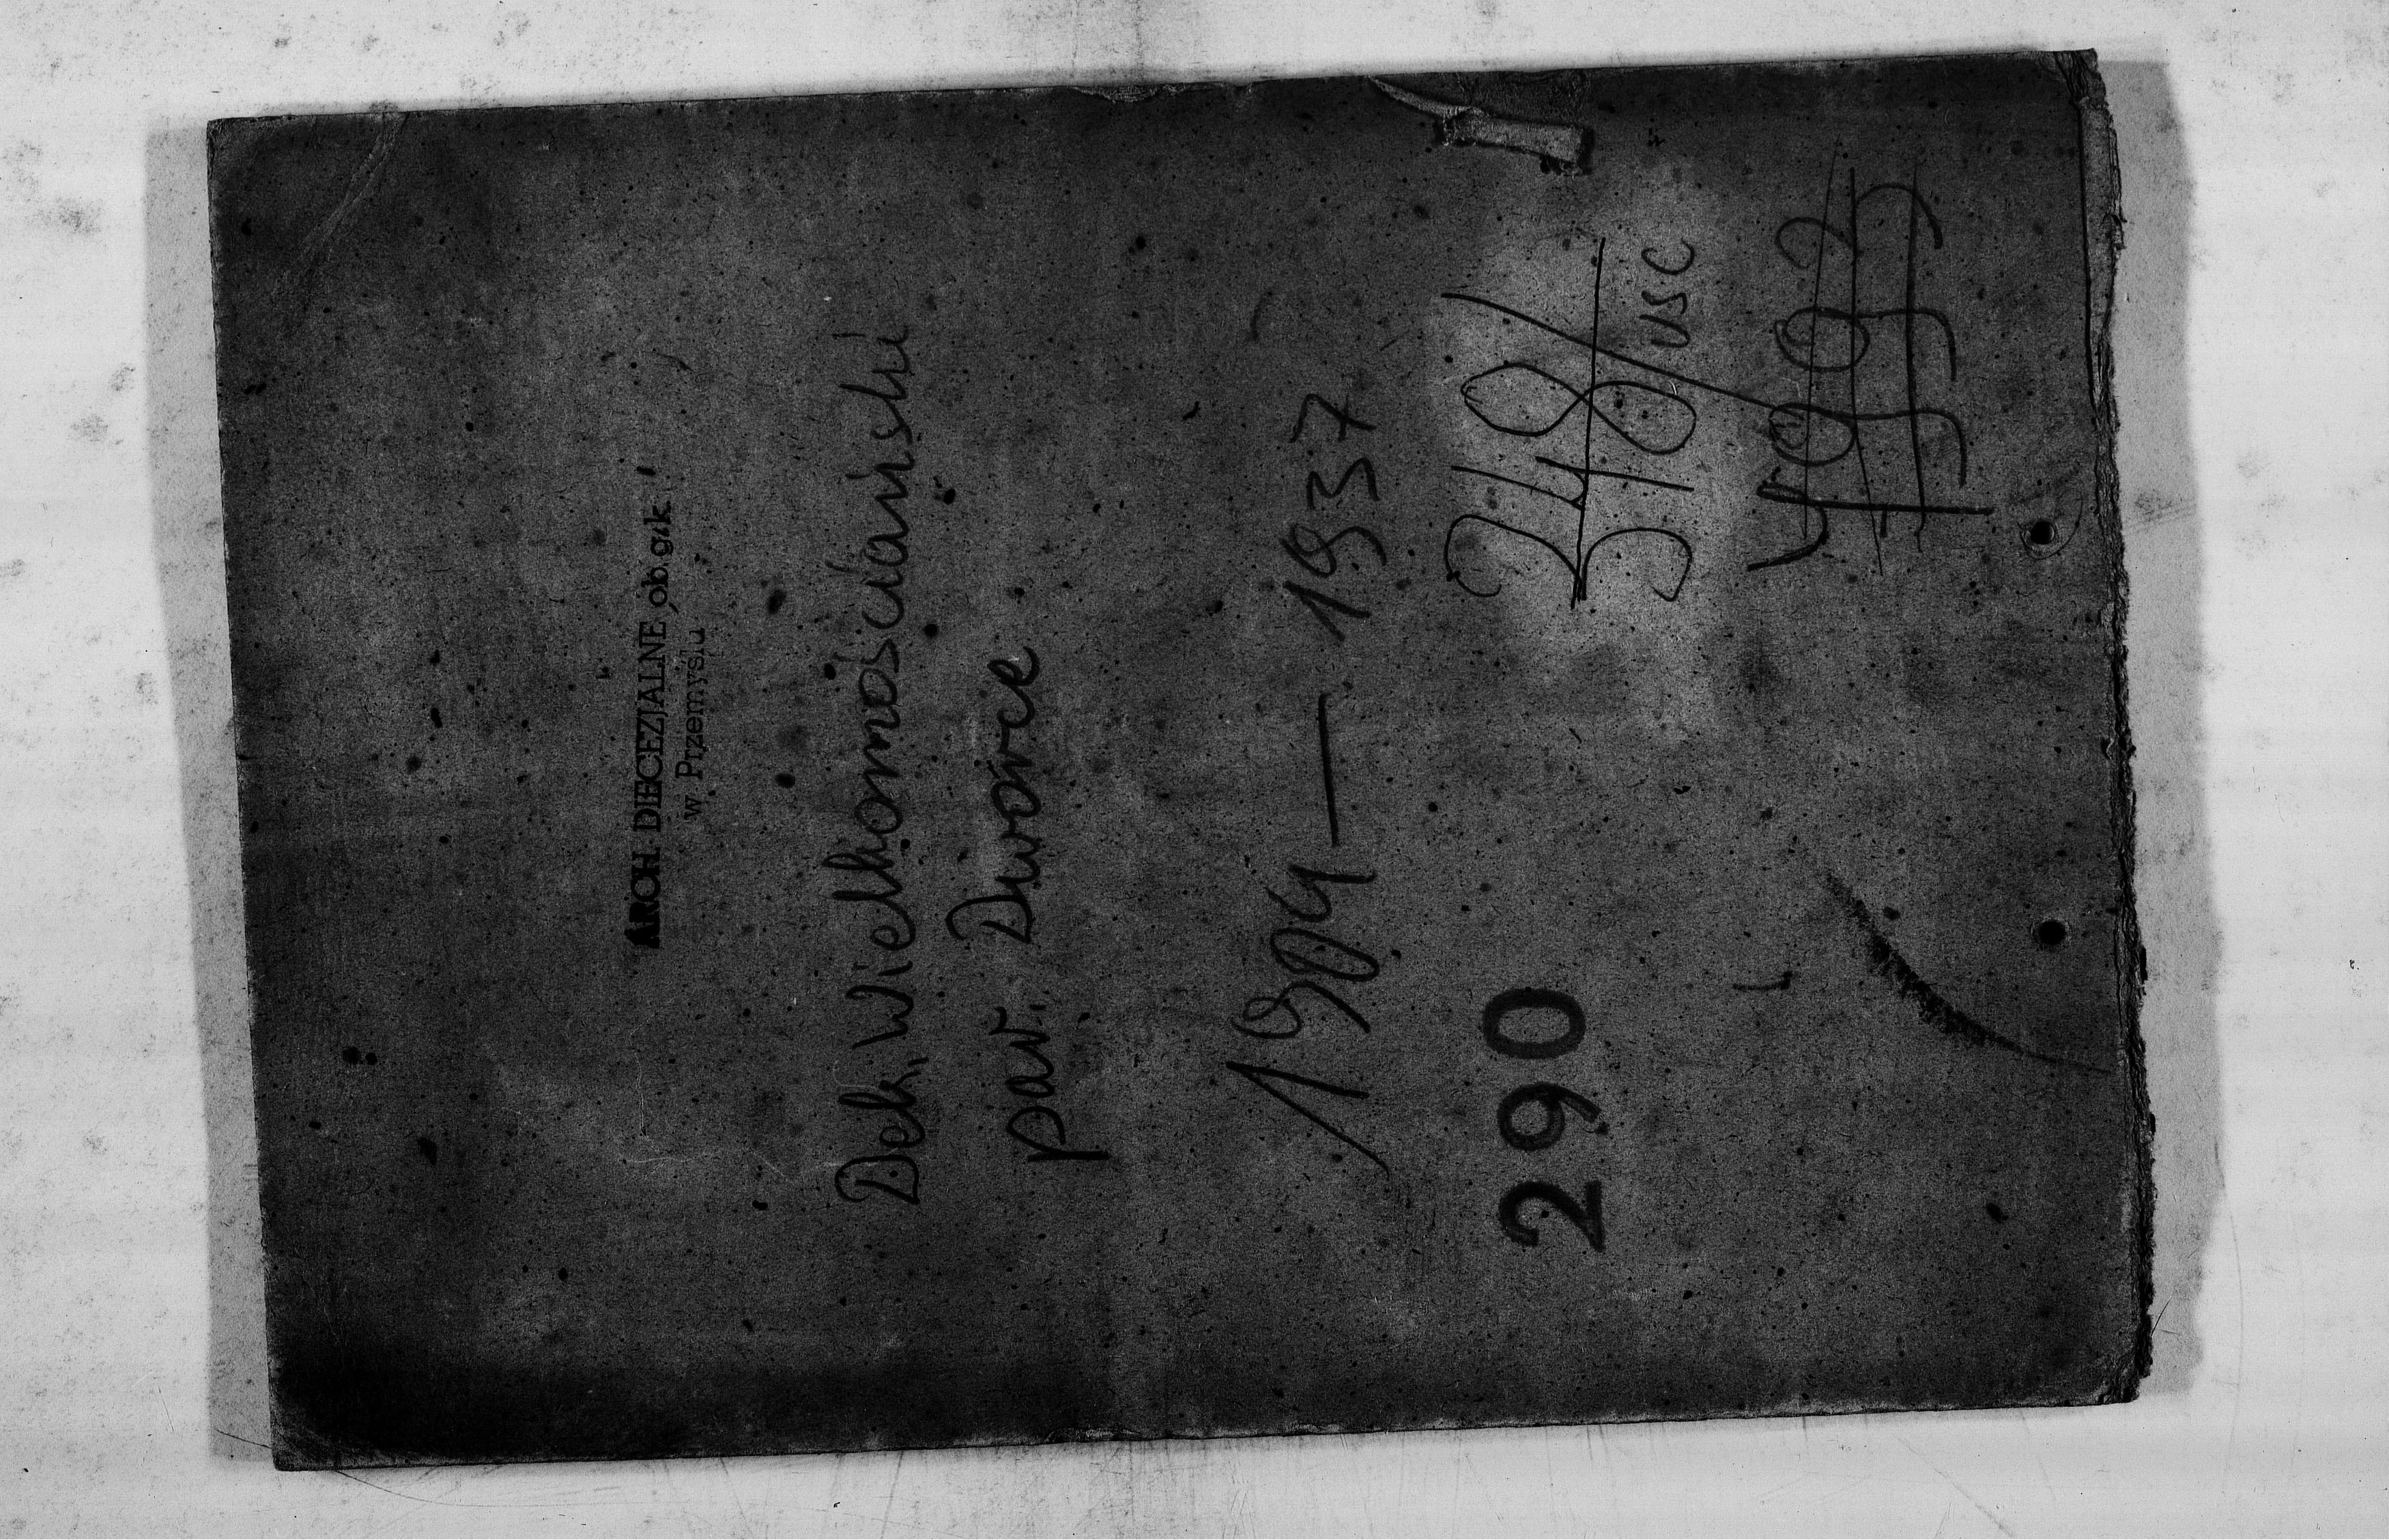 ARCH. DIECEZJALNE ob. g.k.
w Przemyślu
Dek. Wielkomościański
par. Dworce
1924 — 1937
290
348/USC